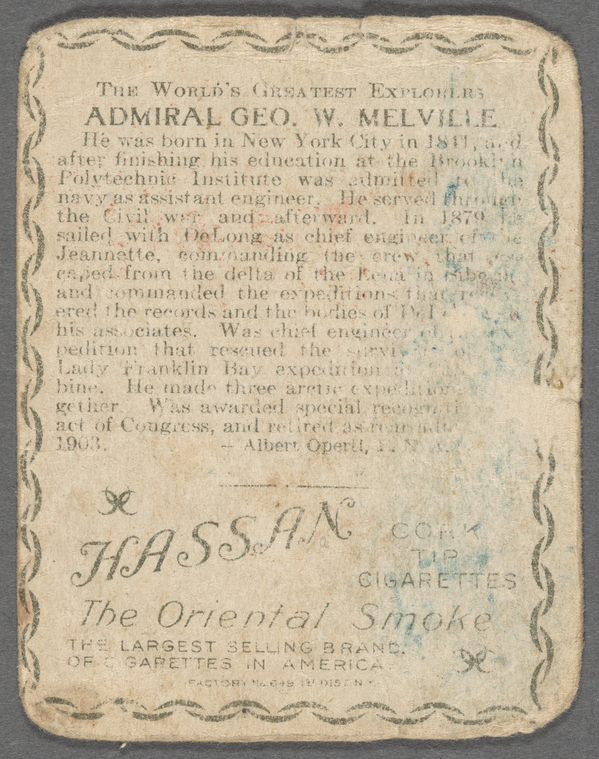 THE WORLD'S GREATEST EXPLORERS
ADMIRAL GEO. W. MELVILLE
He was born in New York City in 1841, and
after finishing his education at the Brooklyn
Polytechnic Institute was admitted to the
navy as assistant engineer. He served through
the Civil war and afterward. In 1879 he
sailed with DeLong as chief engineer of the
Jeannette, commanding the crew that es-
caped from the delta of the Lena in Siberia
and commanded the expeditions that
ered the records and the bodies of
his associates. Was chief engineer of
pedition that rescued the
Lady Franklin Bay expedition
bine. He made three arctic
gether. Was awarded special
act of Congress, and retired as
1903. — Albert Operti,
HASSAN
CORK
TIP
CIGARETTES
The Oriental Smoke
THE LARGEST SELLING BRAND
OF CIGARETTES IN AMERICA
FACTORY No. 649 1ST DIST. N.Y.